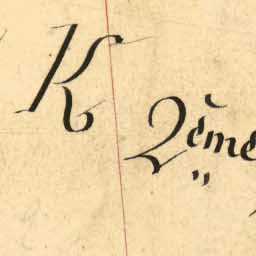 K
2ème